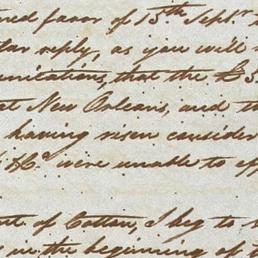 favor of 15th Septr.
reply, as you will
that the £3
at New Orleans, and
having risen consider
& Ho. were unable to
of Cotton, I beg to
in the beginning of